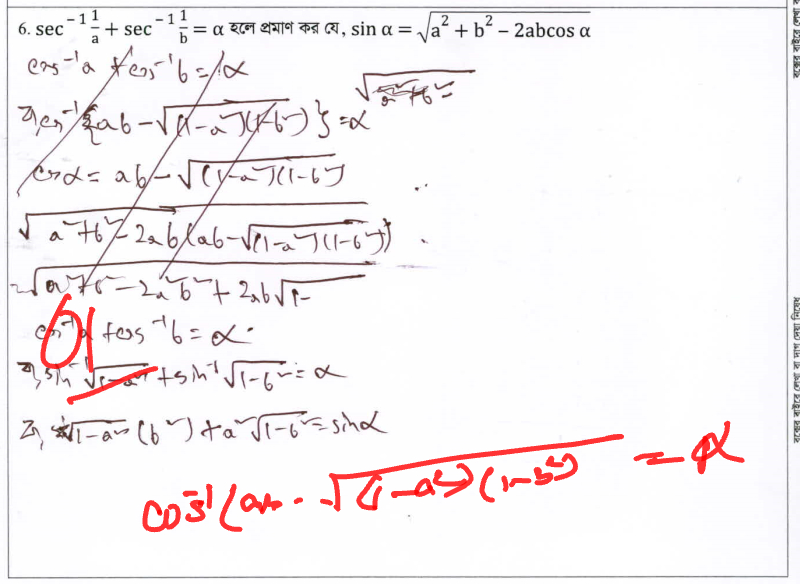 6. sec⁻¹ 1/a + sec⁻¹ 1/b = α হলে প্রমাণ কর যে, sin α = √(a² + b² − 2abcos α)
cos⁻¹a + cos⁻¹b = α
√(a²+b²=
বা, cos⁻¹{ab − √(1−a²)(1−b²)} = α
cosα = ab − √(1−a²)(1−b²)
√(a²+b²−2ab(ab−√(1−a²)(1−b²)))
=√(a²+b²−2a²b²+2ab√1−
cos⁻¹a + cos⁻¹b = α
01
বা, sin⁻¹√1−a² + sin⁻¹√1−b² = α
বা, √1−a² (b²) + a²√1−b² = sinα
cos⁻¹(ab − √(1−a²)(1−b²) = α